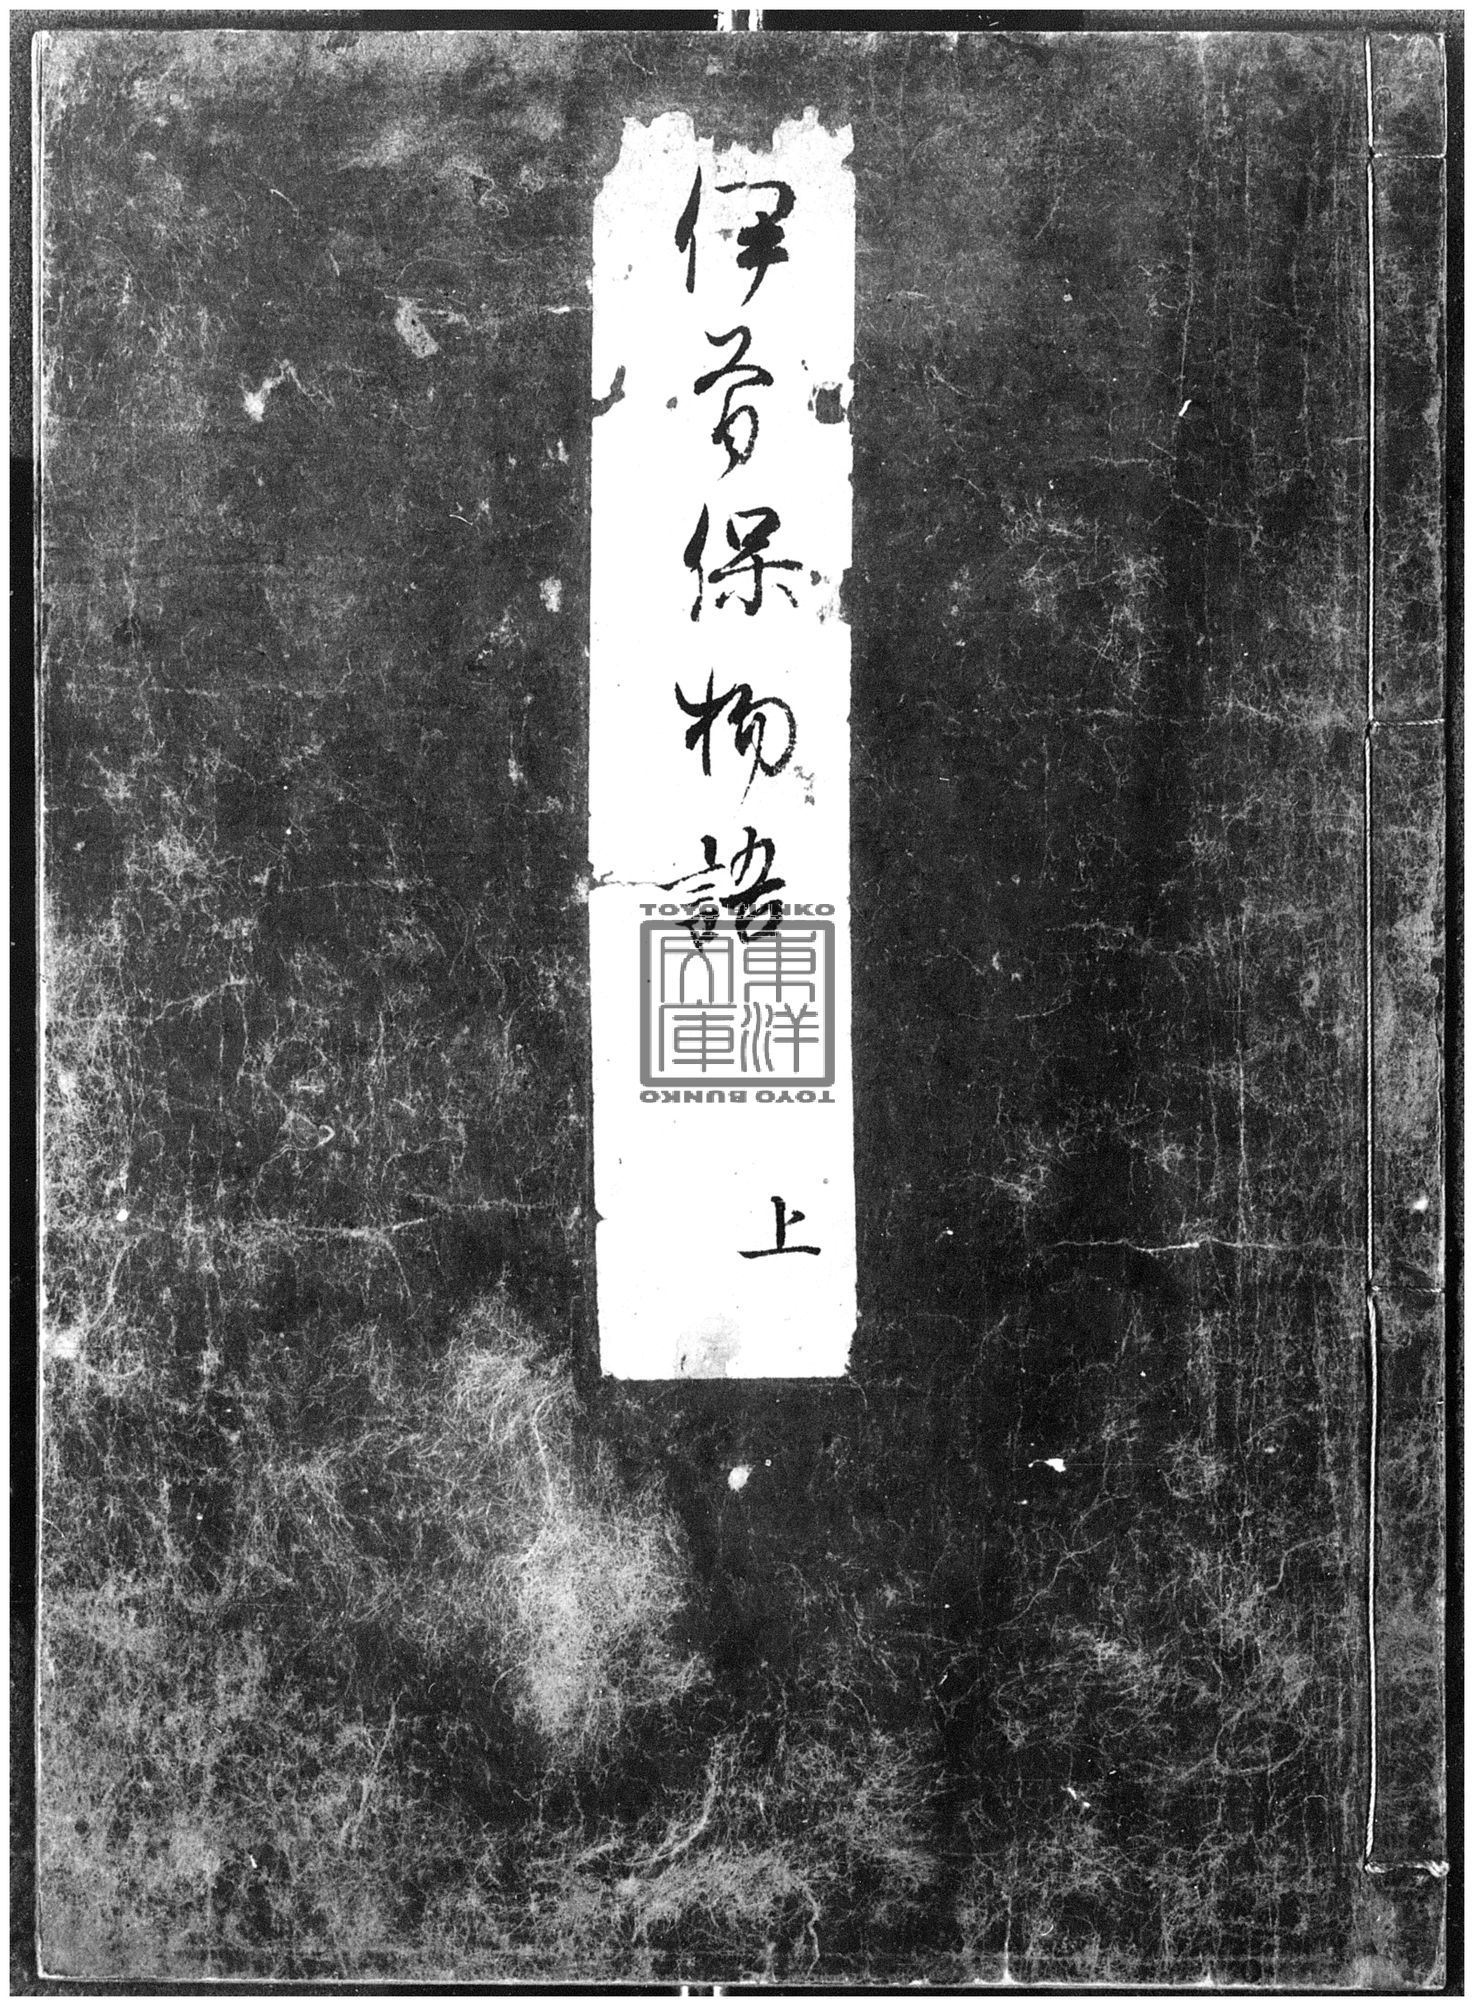 伊曽保物語
上
TOYO BUNKO
東洋
文庫
TOYO BUNKO